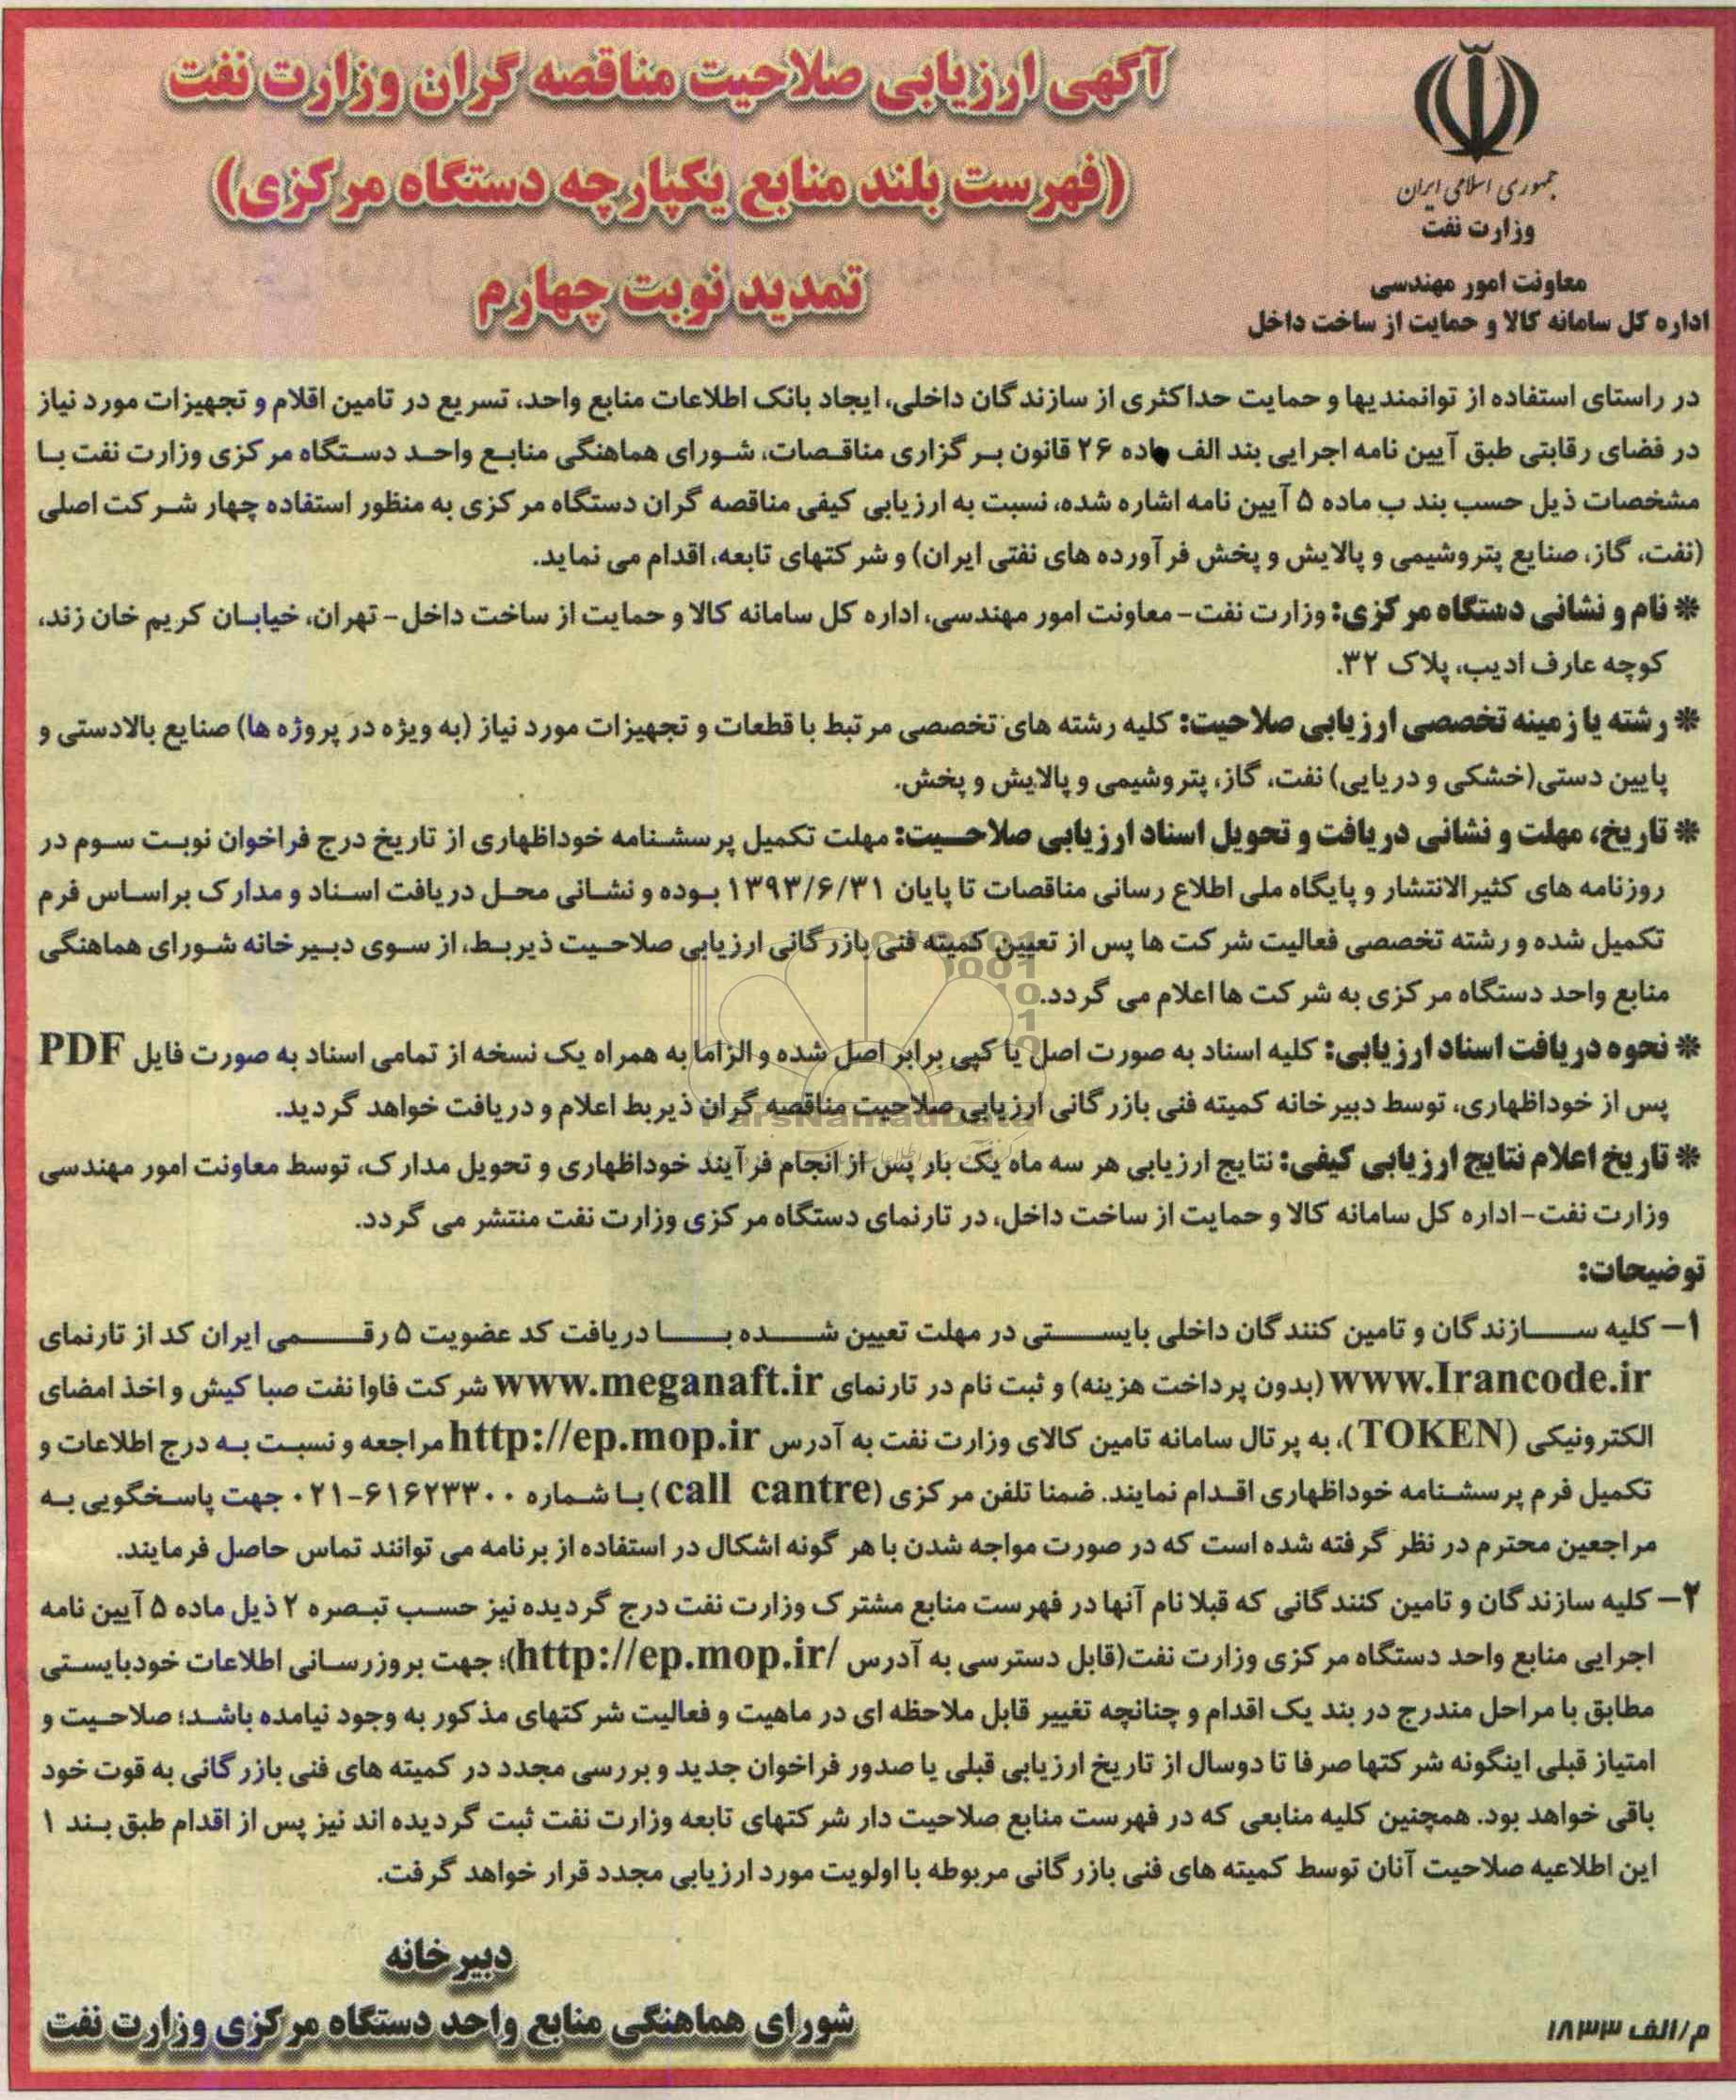 جمهوری اسلامی ایران
وزارت نفت
معاونت امور مهندسی
اداره کل سامانه کالا و حمایت از ساخت داخل
آگهی ارزیابی صلاحیت مناقصه گران وزارت نفت
(فهرست بلند منابع یکپارچه دستگاه مرکزی)
تمدید نوبت چهارم
در راستای استفاده از توانمندیها و حمایت حداکثری از سازندگان داخلی، ایجاد بانک اطلاعات منابع واحد، تسریع در تامین اقلام و تجهیزات مورد نیاز
در فضای رقابتی طبق آیین نامه اجرایی بند الف ماده ۲۶ قانون برگزاری مناقصات، شورای هماهنگی منابع واحد دستگاه مرکزی وزارت نفت با
مشخصات ذیل حسب بند ب ماده ۵ آیین نامه اشاره شده، نسبت به ارزیابی کیفی مناقصه گران دستگاه مرکزی به منظور استفاده چهار شرکت اصلی
(نفت، گاز، صنایع پتروشیمی و پالایش و پخش فرآورده های نفتی ایران) و شرکتهای تابعه، اقدام می نماید.
* نام و نشانی دستگاه مرکزی: وزارت نفت- معاونت امور مهندسی، اداره کل سامانه کالا و حمایت از ساخت داخل- تهران، خیابان کریم خان زند،
کوچه عارف ادیب، پلاک ۳۲.
* رشته یا زمینه تخصصی ارزیابی صلاحیت: کلیه رشته های تخصصی مرتبط با قطعات و تجهیزات مورد نیاز (به ویژه در پروژه ها) صنایع بالادستی و
پایین دستی(خشکی و دریایی) نفت، گاز، پتروشیمی و پالایش و پخش.
* تاریخ، مهلت و نشانی دریافت و تحویل اسناد ارزیابی صلاحیت: مهلت تکمیل پرسشنامه خوداظهاری از تاریخ درج فراخوان نوبت سوم در
روزنامه های کثیرالانتشار و پایگاه ملی اطلاع رسانی مناقصات تا پایان ۱۳۹۳/۶/۳۱ بوده و نشانی محل دریافت اسناد و مدارک براساس فرم
تکمیل شده و رشته تخصصی فعالیت شرکت ها پس از تعیین کمیته فنی بازرگانی ارزیابی صلاحیت ذیربط، از سوی دبیرخانه شورای هماهنگی
منابع واحد دستگاه مرکزی به شرکت ها اعلام می گردد.
* نحوه دریافت اسناد ارزیابی: کلیه اسناد به صورت اصل یا کپی برابر اصل شده و الزاما به همراه یک نسخه از تمامی اسناد به صورت فایل PDF
پس از خوداظهاری، توسط دبیرخانه کمیته فنی بازرگانی ارزیابی صلاحیت مناقصه گران ذیربط اعلام و دریافت خواهد گردید.
ParsNamadData
* تاریخ اعلام نتایج ارزیابی کیفی: نتایج ارزیابی هر سه ماه یک بار پس از انجام فرآیند خوداظهاری و تحویل مدارک، توسط معاونت امور مهندسی
وزارت نفت- اداره کل سامانه کالا و حمایت از ساخت داخل، در تارنمای دستگاه مرکزی وزارت نفت منتشر می گردد.
توضیحات:
۱- کلیه سازندگان و تامین کنندگان داخلی بایستی در مهلت تعیین شده با دریافت کد عضویت ۵ رقمی ایران کد از تارنمای
www.Irancode.ir (بدون پرداخت هزینه) و ثبت نام در تارنمای www.meganaft.ir شرکت فاوا نفت صبا کیش و اخذ امضای
الکترونیکی (TOKEN)، به پرتال سامانه تامین کالای وزارت نفت به آدرس http://ep.mop.ir مراجعه و نسبت به درج اطلاعات و
تکمیل فرم پرسشنامه خوداظهاری اقدام نمایند. ضمنا تلفن مرکزی (call cantre) با شماره ۶۱۶۲۳۳۰۰-۰۲۱ جهت پاسخگویی به
مراجعین محترم در نظر گرفته شده است که در صورت مواجه شدن با هر گونه اشکال در استفاده از برنامه می توانند تماس حاصل فرمایند.
۲- کلیه سازندگان و تامین کنندگانی که قبلا نام آنها در فهرست منابع مشترک وزارت نفت درج گردیده نیز حسب تبصره ۲ ذیل ماده ۵ آیین نامه
اجرایی منابع واحد دستگاه مرکزی وزارت نفت(قابل دسترسی به آدرس http://ep.mop.ir/)؛ جهت بروزرسانی اطلاعات خودبایستی
مطابق با مراحل مندرج در بند یک اقدام و چنانچه تغییر قابل ملاحظه ای در ماهیت و فعالیت شرکتهای مذکور به وجود نیامده باشد؛ صلاحیت و
امتیاز قبلی اینگونه شرکتها صرفا تا دوسال از تاریخ ارزیابی قبلی یا صدور فراخوان جدید و بررسی مجدد در کمیته های فنی بازرگانی به قوت خود
باقی خواهد بود. همچنین کلیه منابعی که در فهرست منابع صلاحیت دار شرکتهای تابعه وزارت نفت ثبت گردیده اند نیز پس از اقدام طبق بند ۱
این اطلاعیه صلاحیت آنان توسط کمیته های فنی بازرگانی مربوطه با اولویت مورد ارزیابی مجدد قرار خواهد گرفت.
دبیرخانه
شورای هماهنگی منابع واحد دستگاه مرکزی وزارت نفت
م/الف ۱۸۳۳